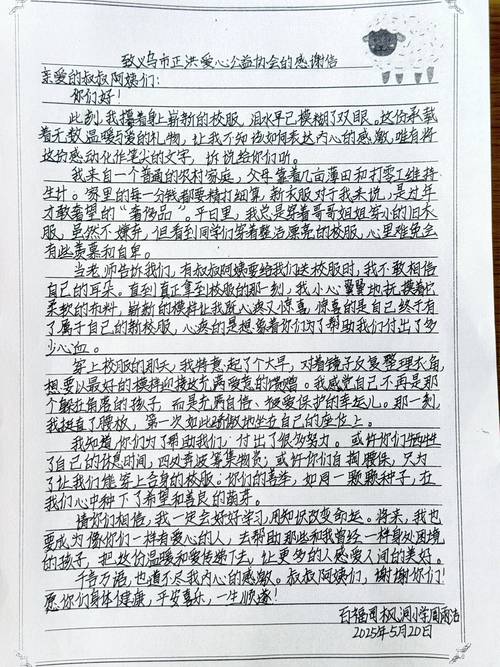 致义乌市正洪爱心公益协会的感谢信
亲爱的叔叔阿姨们：
你们好！
此刻，我摸着身上崭新的校服，泪水早已模糊了双眼。这份承载
着无数温暖与爱的礼物，让我不知该如何表达内心的感激，唯有将
这份感动化作笔尖的文字，诉说给你们听。
我来自一个普通的农村家庭，父母靠着几亩薄田和打零工维持
生计。家里的每一分钱都要精打细算，新衣服对于我来说，是过年
才敢奢望的“奢侈品”。平日里，我总是穿着哥哥姐姐穿小的旧衣
服，虽然不嫌弃，但看到同学们穿着整洁漂亮的校服，心里难免会
有些羡慕和自卑。
当老师告诉我们，有叔叔阿姨要给我们送校服时，我不敢相信
自己的耳朵。直到真正拿到校服的那一刻，我小心翼翼地抚摸着它
柔软的布料，崭新的模样让我既心疼又惊喜，惊喜的是自己终于有
了属于自己的新校服，心疼的是想象着你们为了帮助我们付出了多
少心血。
穿上校服的那天，我特意起了个大早，对着镜子反复整理衣角，
想要以最好的模样迎接这充满爱意的馈赠。我感觉自己不再是那
个躲在角落的孩子，而是充满自信、被爱保护的幸运儿。那一刻，
我挺直了腰板，第一次如此骄傲地坐在自己的座位上。
我知道，你们为了帮助我们，付出了很多努力。或许你们牺牲
了自己的休息时间，四处奔波筹集物资；或许你们自掏腰包，只为
了让我们能穿上合身的校服。你们的善举，如同一颗颗种子，在
我们心中种下了希望和善良的萌芽。
请你们相信，我一定会好好学习，用知识改变命运。将来，我也
要成为像你们一样有爱心的人，去帮助那些和我曾经一样身处困境
的孩子，把这份温暖和爱传递下去，让更多的人感受人间的美好。
千言万语，也道不尽我内心的感激。叔叔阿姨们，谢谢你们！
愿你们身体健康，平安喜乐，一生顺遂！
百福司枫洞小学周雨洁
2025年5月20日